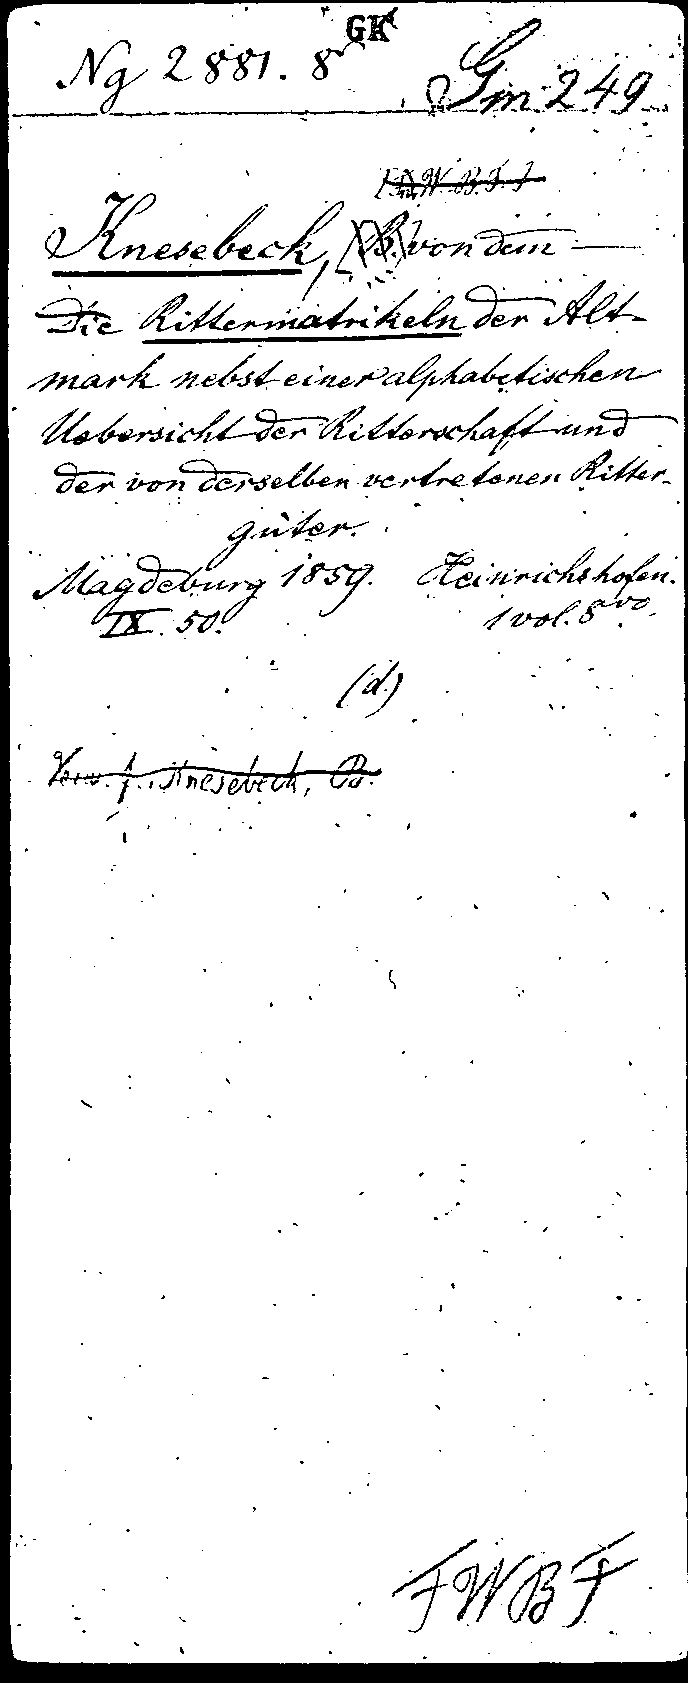 GK
Ng 2881. 8° Gm 249
[F.W.B.F.]
Knesebeck, [B.] von dem —
Die Rittermatrikeln der Alt-
mark nebst einer alphabetischen
Uebersicht der Ritterschaft und
der von derselben vertretenen Ritter-
güter.
Magdeburg 1859. Heinrichshofen.
IX. 50. 1 vol. 8vo.
(d.)
Verw. f. Knesebeck, B.
FWBF